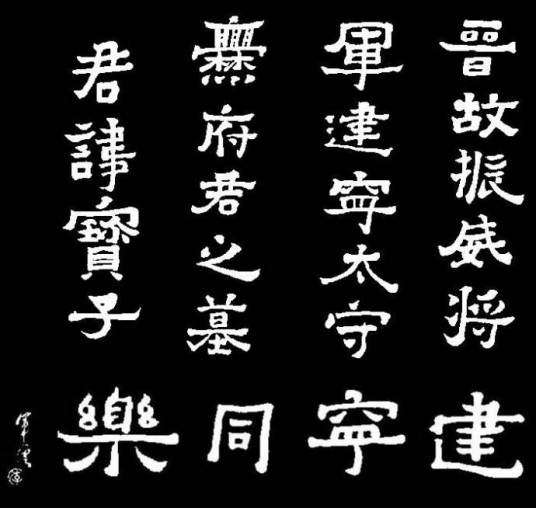 晋故振威将
軍建寧太守
爨府君之墓
君諱寶子
建寧同樂